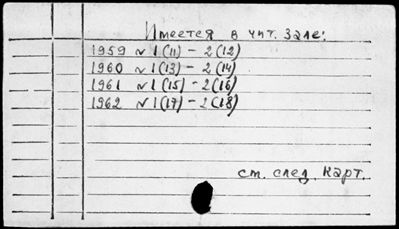 Имеется в чит. зале:
1959 N 1(11) - 2(12)
1960 N 1(13) - 2(14)
1961 N 1(15) - 2(16)
1962 N 1(17) - 2(18)
см. след. карт.